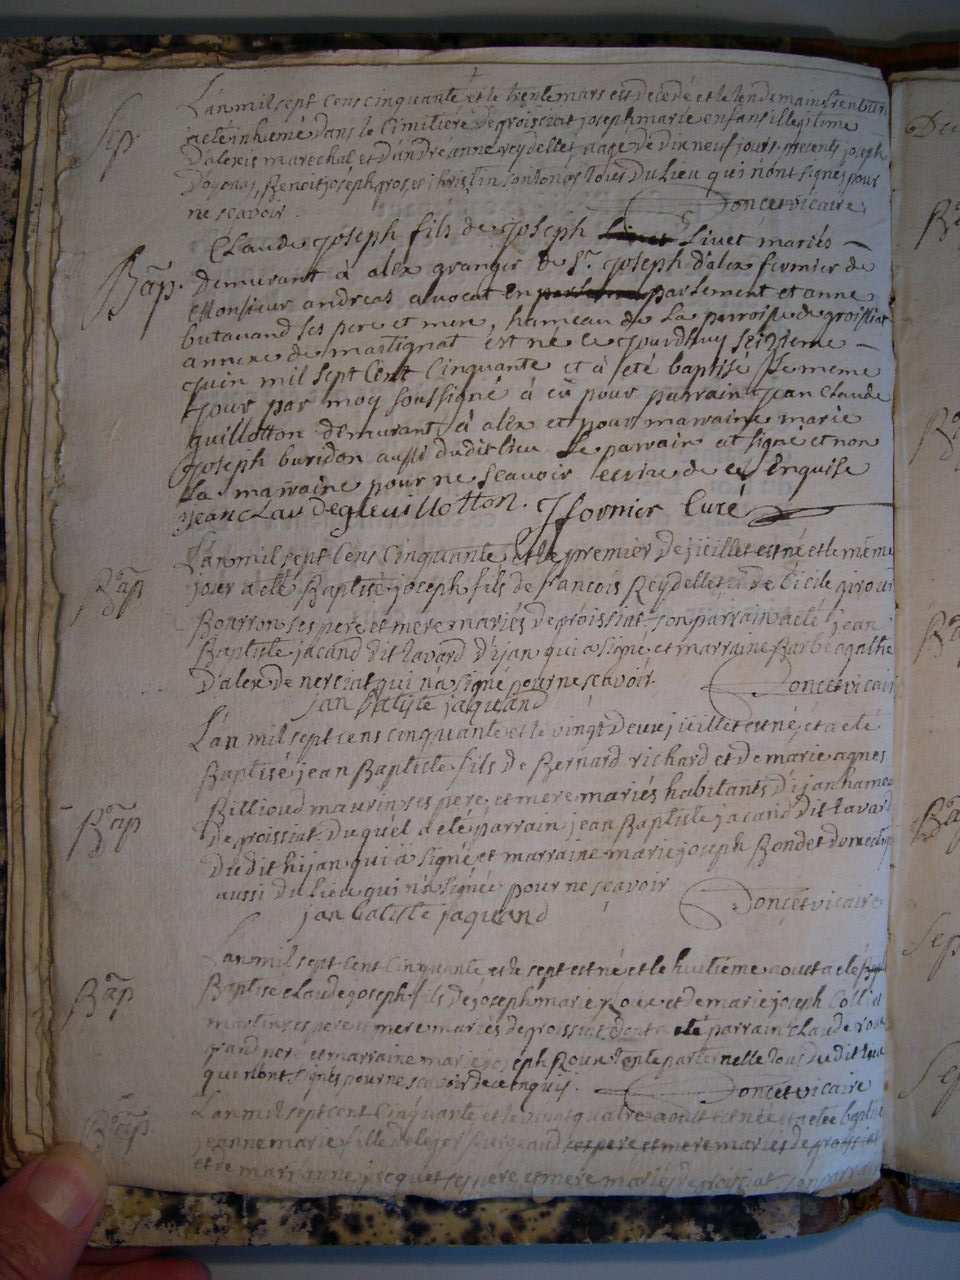 Sep.
L'an mil sept cens cinquante et le trente mars est décédé et le lendemain trent un
a été inhumé dans le cimitiere de groissiat joseph marie enfans illegitime
d'alexis marechal et d'andreanne reydellet agé de dix neuf jours presents joseph
Doyonas, Benoit joseph gros et christin tous du lieu qui n'ont signés pour
ne scavoir. Doncet vicaire
Bap. Claude joseph fils de joseph Livet mariés
demeurant à alex granger de Sr. joseph d'alex fermier de
Monsieur andreas avocat en parlement et anne
butavand ses pere et mere, hameau de la parroisse de groissiat
annexe de martignat est né ce jourdhuy seizieme
juin mil sept cent cinquante et à été baptisé le meme
jour par moy soussigné à eü pour parrain jean claude
guillotton demurant à alex et pour marraine marie
joseph buridon aussi dudit lieu. Le parrain at signe et non
la marraine pour ne scavoir ecrire de ce enquise
jean clau de gleuillotton. Jfornier Curé
Bap
L'an mil sept cens cinquante et le premier de jüeillet est né et le même
jour a eté Baptisé joseph fils de francois Reydellet et de Cicile giroud
Bourron ses pere et mere mariés de groissiat son parrain a eté jean
Baptiste jacand dit tavard d'ijan qui a signé et marraine Barbe agathe
D'alex de nerciat qui n'a signé pour ne scavoir. Doncet vicair
jan batiste jaquand
L'an mil sept cens cinquante et le vingt deux jüeillet est né, et a eté
Baptisé jean Baptiste fils de Bernard richard et de marie agnes
Billioud maurin ses pere et mere mariés habitants d'ijan hameau
Bap
de groissiat duquel a eté parrain jean Baptiste jacand dit tavard
dudit hijan qui a signé et marraine marie joseph Bondet domestiq
aussi du lieu qui n'a signée pour ne scavoir
jan batiste jaquand Doncet vicaire
L'an mil sept cent cinquante et le sept est né et le huitiéme aoust a eté
Bap
Baptisé claude joseph fils de joseph marie roux et de marie joseph Collet
martin ses pere et mere mariés de groissiat dont a eté parrain claude roux
grand pere et marraine marie joseph Roux tente paternelle tous dudit lieu
qui n'ont signés pour ne scavoir de ce enquis. Doncet vicaire
Bap
L'an mil sept cent cinquante et le vingt quatre aoust est née et a etée baptisé
jeanne marie fille de ses pere et mere mariés de groissiat
et de marianne jacquet ses pere et mere mariés de groissiat son parrain